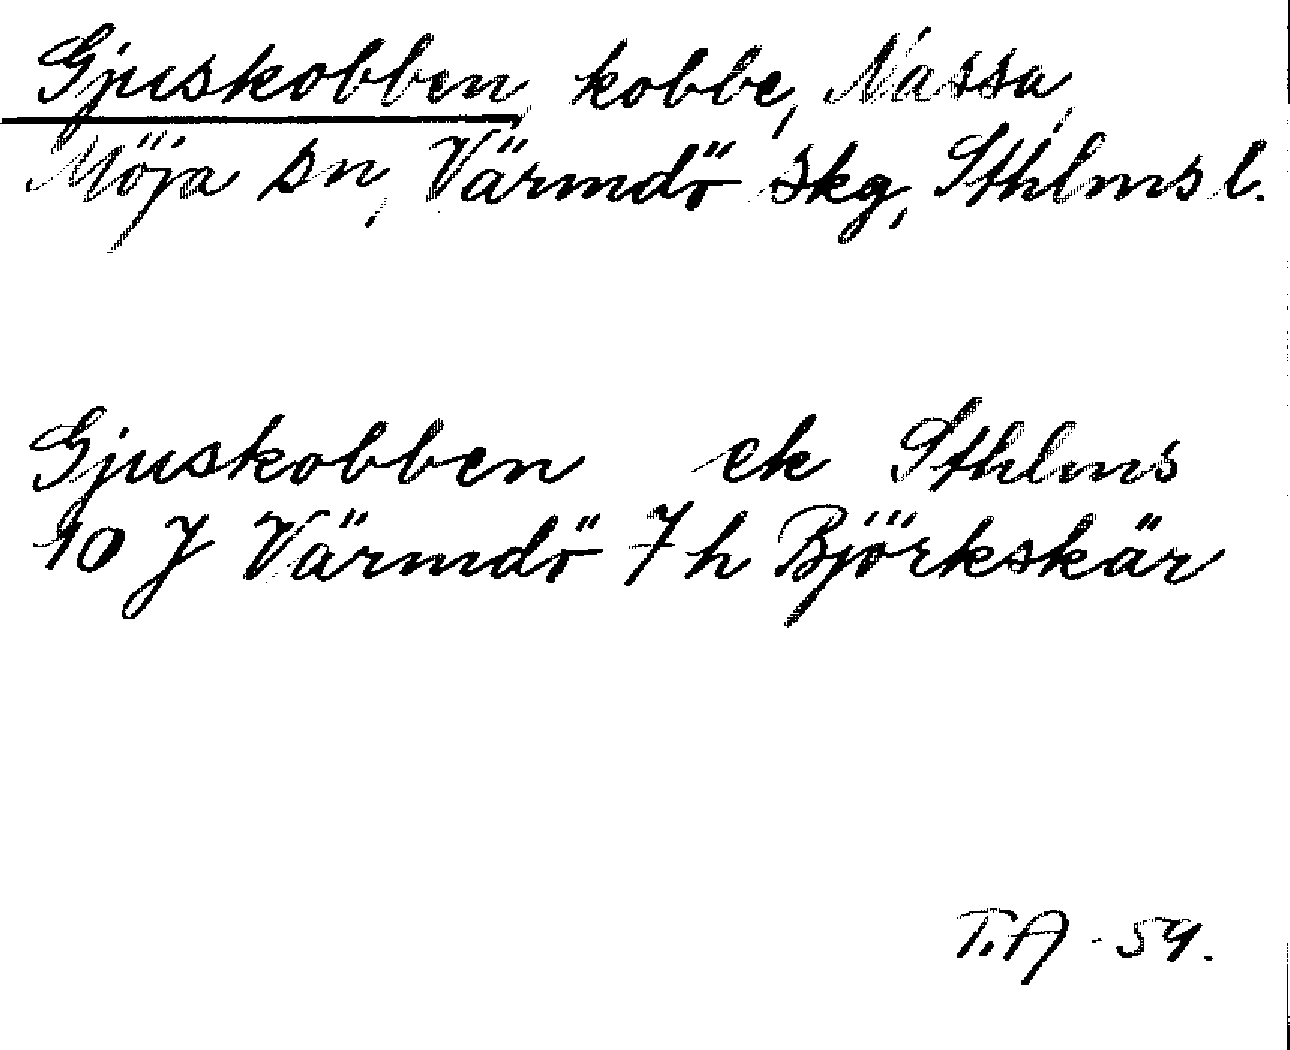 Gjuskobben, kobbe, Nassa,
Möja sn, Värmdö skg, Sthlms l.
Gjuskobben ek Sthlms
10 J Värmdö 7 h Björkskär
T.A - 59.